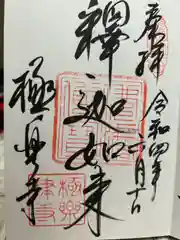 奉拝
令和四年
月十日
釋迦如来
極楽寺
極樂
律寺